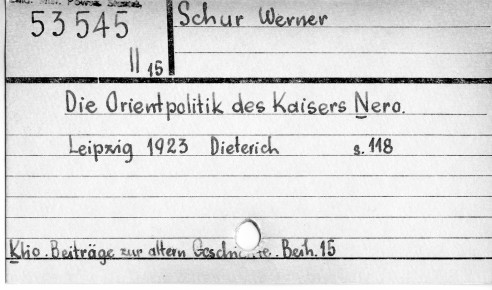 53545 Schur Werner
II 15
Die Orientpolitik des Kaisers Nero.
Leipzig 1923 Dieterich s. 118
Klio. Beiträge zur altern Geschichte. Beih. 15